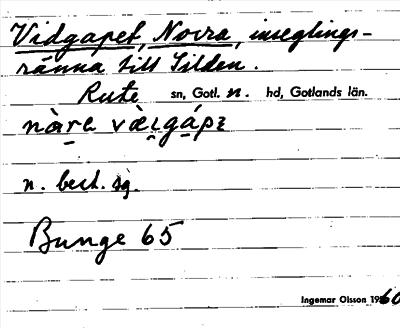 Vidgapet, Norra, inseglings-
ränna till Silden.
Rute sn, Gotl. n. hd, Gotlands län.
n. best. sg.
Bunge 65
Ingemar Olsson 1960